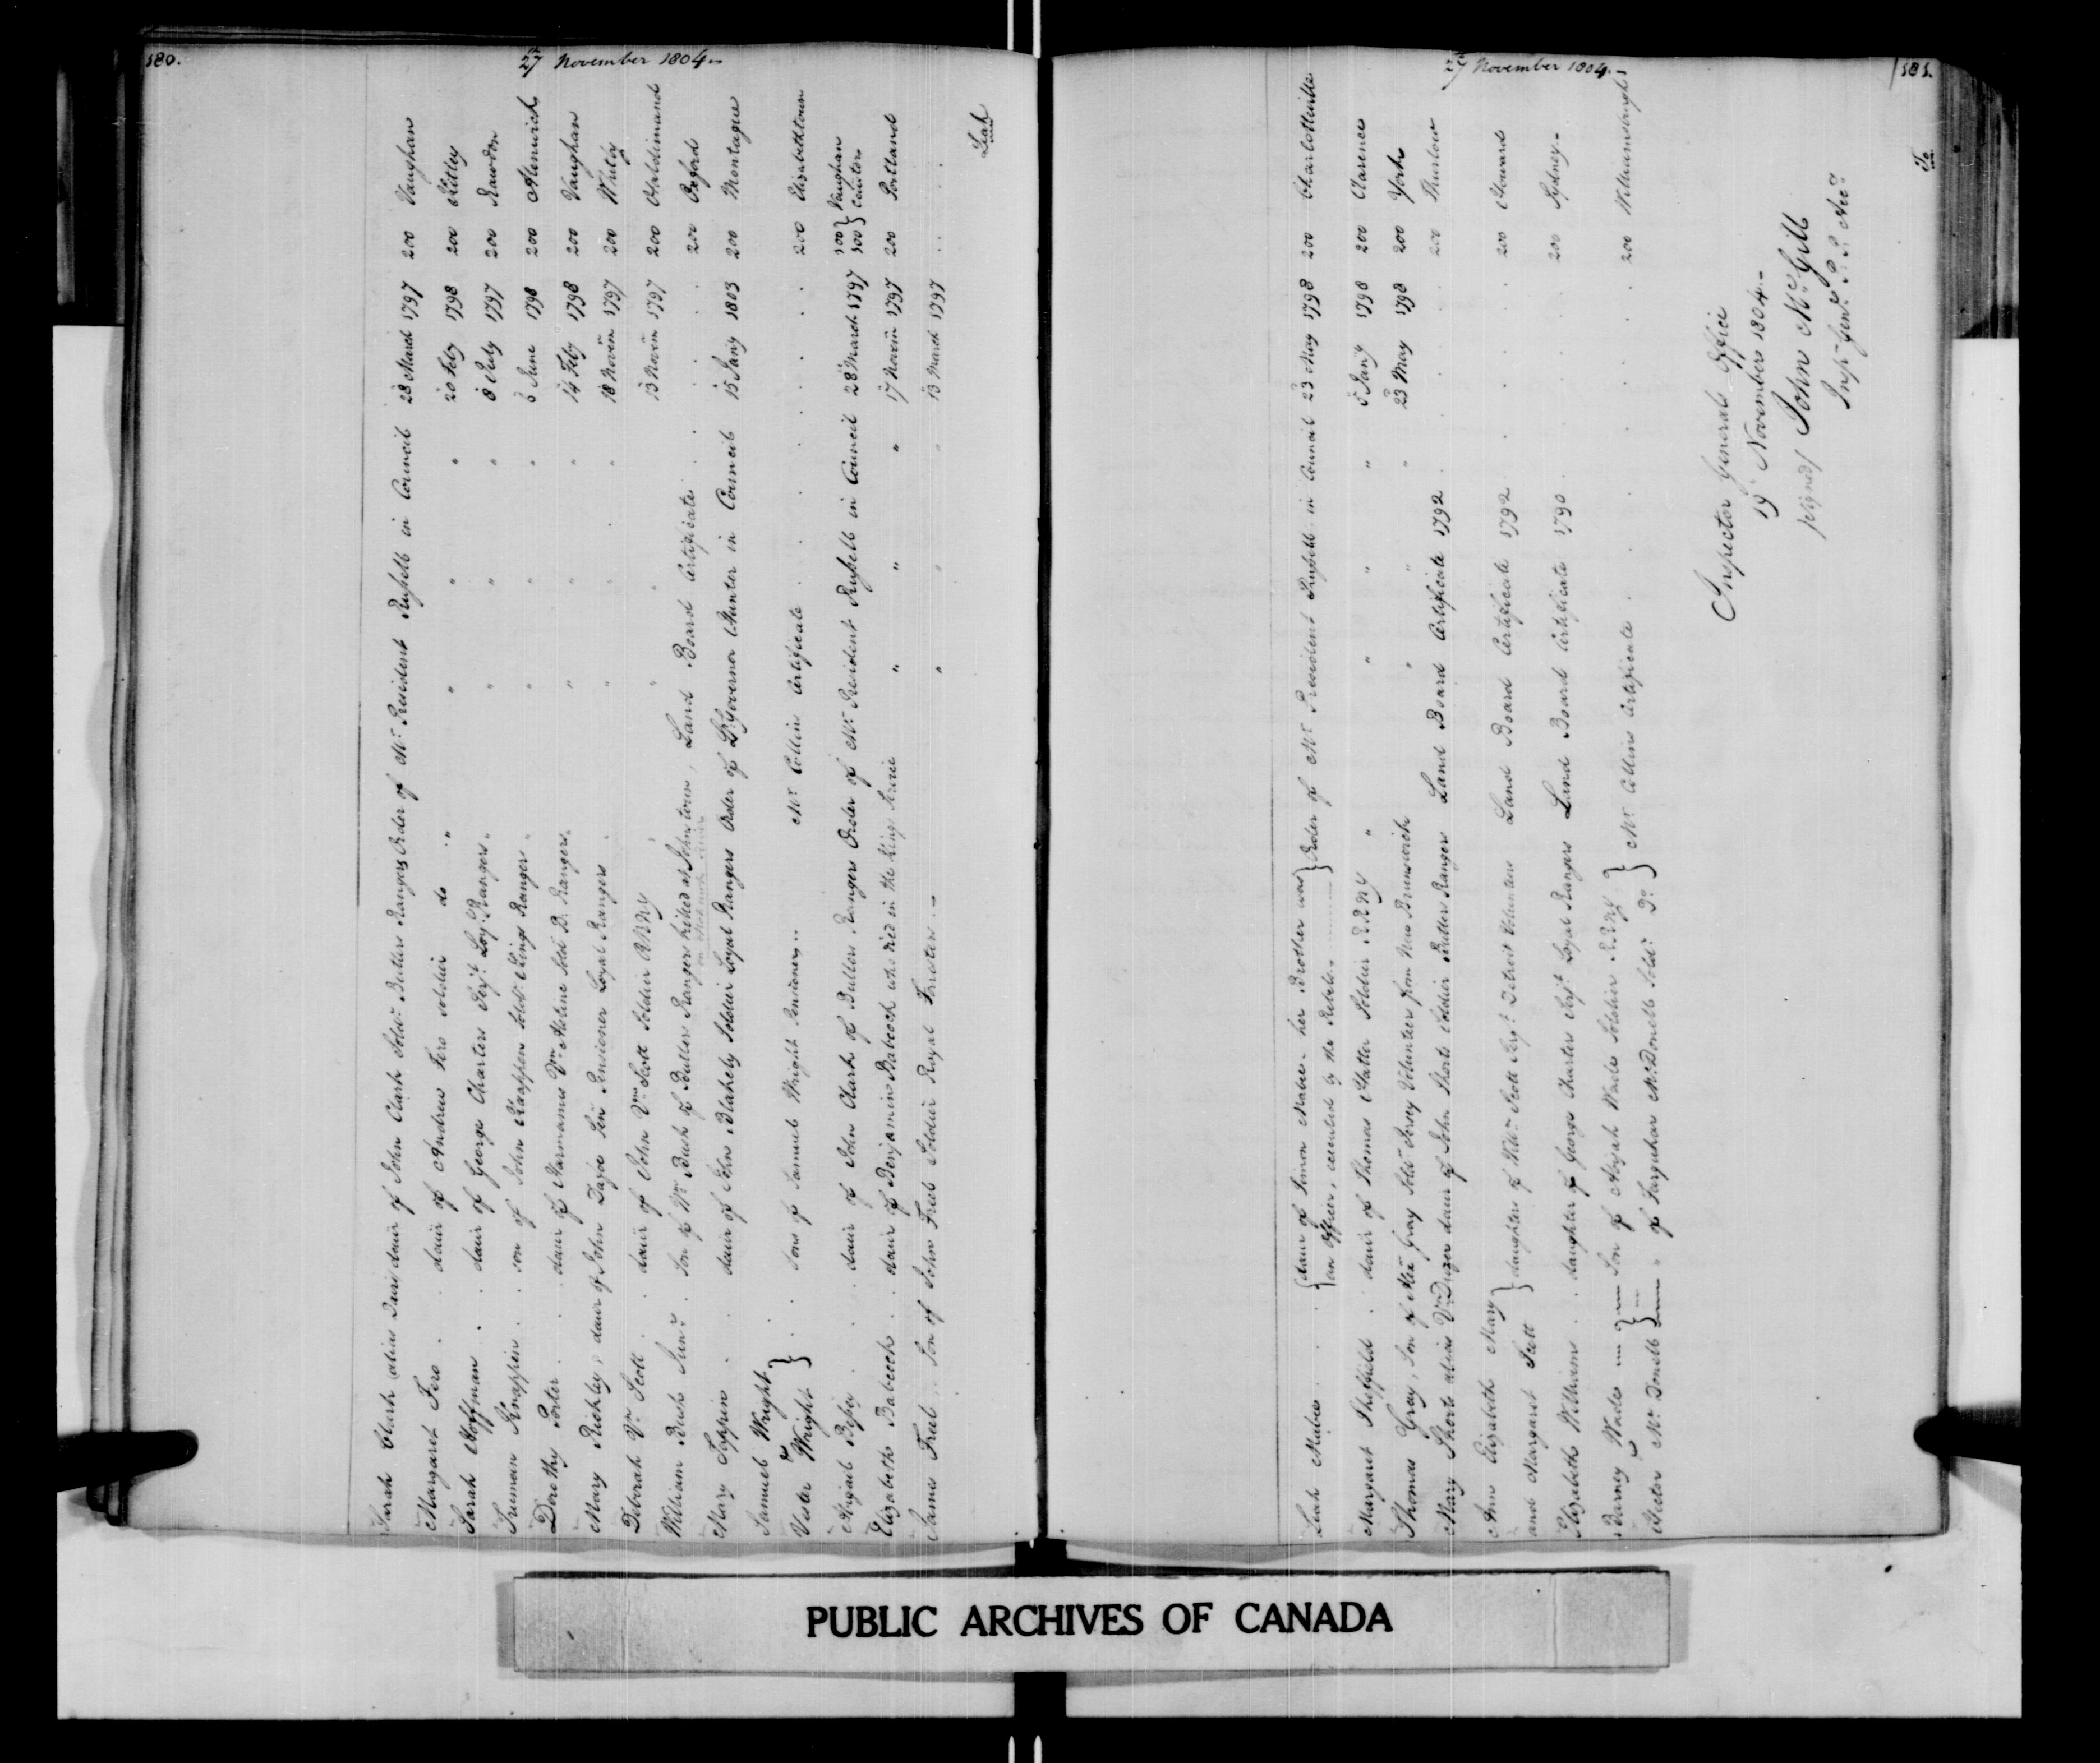 180.
27 November 1804.
Sarah Clark alias Davis daur of John Clark Soldr. Butlers Rangers Order of Mr. President Russell in Council 28 March 1797 200 Vaughan
Margaret Fero . . daur of Andrew Fero soldier do " " " " 20 Feby 1798 200 Kitley
Sarah Hoffman . . daur of George Charters Serjt. Loyl. Rangers " " " " 8 July 1797 200 Rawdon
Truman Knappin . . son of John Knappin Soldr. Kings Rangers " " " " 6 June 1798 200 Alnwick
Dorothy Porter . . daur of Harmanus Vn. Alstine Soldr. B. Rangers " " " " 14 Feby 1798 200 Vaughan
Mary Richley, daur of John Dafoe Senr. Pensioner Loyal Rangers " " " " 18 Novem 1797 200 Whitby
Deborah Vn. Scott . daur of John Vn. Scott Soldier RRNY " " " 13 Novem 1797 200 Haldimand
William Bush Junr. . Son of Wm. Bush of Butlers Rangers killed at Johnstown, Land Board Certificate . . 200 Oxford
on Mohawk River
Mary Tappin . . daur of John Blakely Soldier Loyal Rangers Order of Lt. Governor Hunter in Council 15 Jany 1803 200 Montague
Samuel Wright
& } . . Sons of Samuel Wright Pensioner . . Mr. Collin Certificate . . . . 200 Elizabethtown
Wright
Abigail . . daur of John Clark of Butlers Rangers Order of Mr. President Russell in Council 28 March 1797 100 } Vaughan
100 }
Elizabeth Babcock . . daur of Benjamin Babcock who died in the King Service " " " 17 Novem 1797 200 Portland
James Freel . . Son of John Freel Soldier Royal . " " " 13 March 1797 . . . .
Leah
27 November 1804.
181.
Leah Mabee . . . { daur of Simon Mabee her Brother was } Order of Mr President Russell in Council 23 May 1798 200 Charlotteville
{ an Officer, executed by the Rebels }
Margaret Sheffield . . daur of Thomas Slatter Soldier RRNY " " " " 5 Jany 1798 200 Clarence
Thomas Gray, Son of Alex Gray Soldr. Jersey Volunteer from New Brunswick " " " 23 May 1798 200 York
Mary Shorts alias daur of John Shorts Soldier Butlers Ranger Land Board Certificate 1792 . . . 200 Thurlow
Ann Elizabeth Mary }
and Margaret Scott } daughters of Wm. Scott Serjt. Detroit Volunteers Land Board Certificate 1792 . . . 200 Howard
Elizabeth Williams . . daughter of George Charters Serjt. Loyal Rangers Land Board Certificate 1790 . . . 200 Sydney
Barney Wade } Son of Abijah Wade Soldier RRNY }
& } } Mr. Collins Certificate . . . . 200 Williamsburgh
Hector McDonell " of Farquhar McDonell Soldr. Do. }
Inspector Generals Office
19 November 1804.
signed/ John McGill
Insp. Genl. P. P. Acc.
To
PUBLIC ARCHIVES OF CANADA